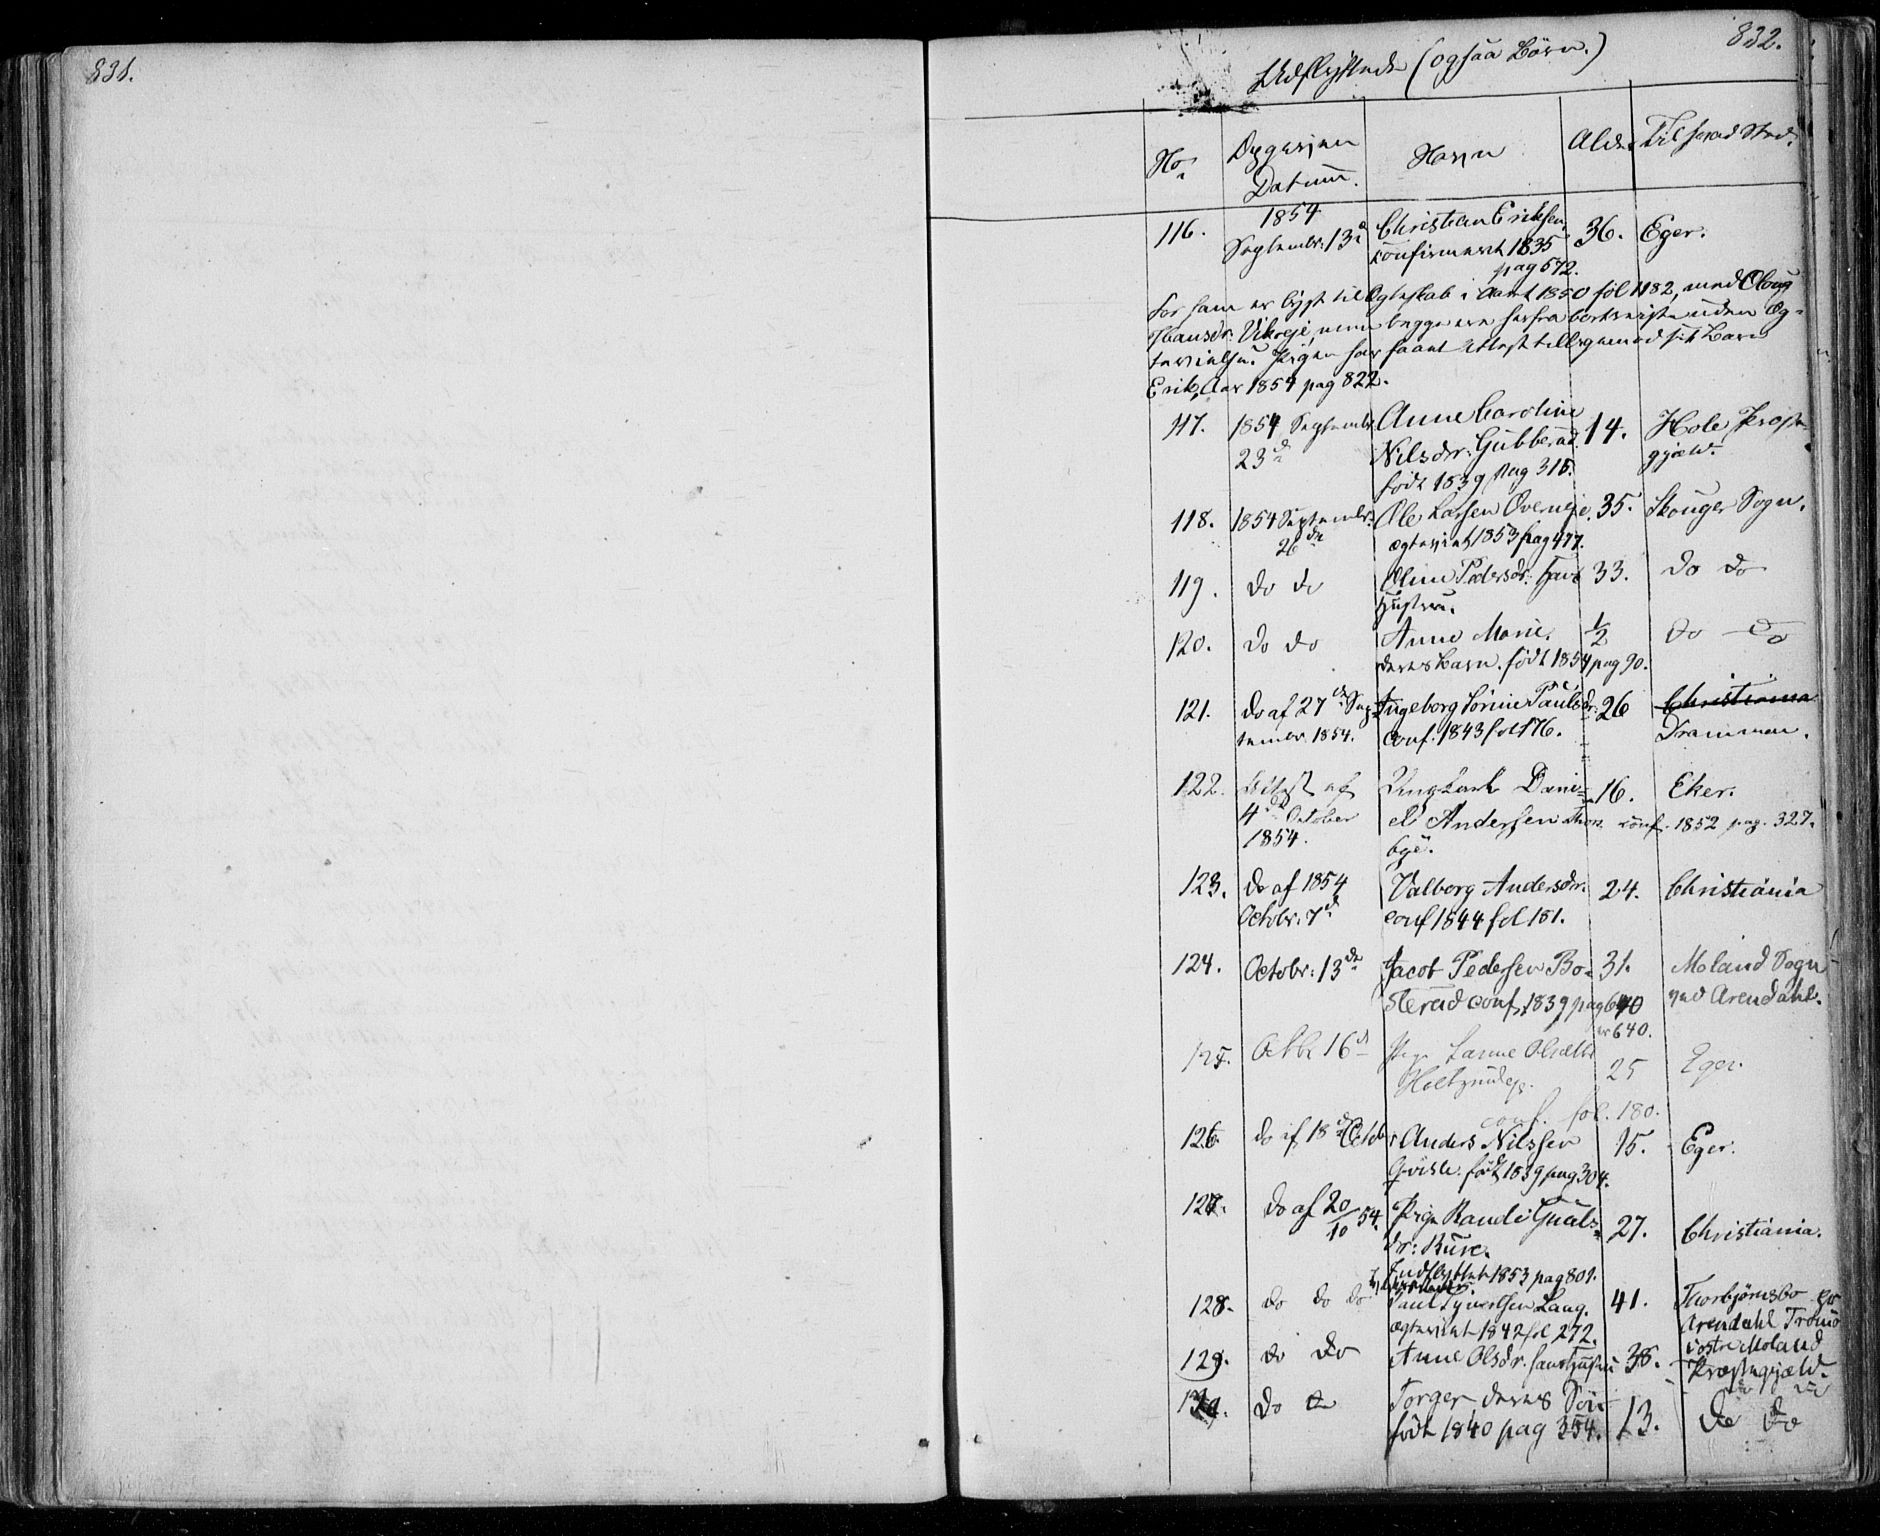 831.
832.
Udflyttede (ogsaa Børn.)
No
Datum.
Navn
Alder
Til hvad Sted.
116.
1854
Septembr: 13de
Christian Eriksen,
confirmeret 1835
pag 572.
36.
Eger.
for ham er lyst til Ægteskab i Aaret 1850 fol 1182, med Oloug
Hansdr: Vikeeie, men begge ere herfra bortreiste uden Æg-
tevielse. Pigen har faaet Attest tilligemed sit Barn
Erik, Aar 1854 pag 822.
117.
1854 Septembr
23de
Anne Caroline
Nilsdr: Gubberud
født 1839 pag 315.
14.
Hole Præste-
gjæld.
118.
1854 Septembr.
26de
Ole Larsen Overneje,
ægteviet 1853 pag 477.
35.
Skouger Sogn.
119.
do do
Oline Pedersdr: hans
Hustru.
33.
do do
120.
do do
Anne Marie.
deres Barn. født 1854 pag 90.
1/2
do do
121.
do af 27de Sep-
tembr. 1854.
Ingeborg Torine Paulsdr:
conf. 1843 fol 176.
26
Christiania
Drammen.
122.
Attest af
4de October
1854.
Ungkarl Dani-
el Andersen Thor
bye.
16.
Eker.
conf. 1852 pag. 327.
123.
do af 1854
Octobr: 7de
Valborg Andersdr.
conf 1844 fol 181.
24.
Christiania
124.
Octobr: 13de
Jacob Pedersen Bo-
sterud conf. 1839 pag 640
er 640.
31.
Moland Sogn
ved Arendahl.
125.
Octbr 16de
Pige
25
Eger.
conf. fol. 180.
126.
do af 18de Octobr
Anders Nilssen
Qvisle. født 1839 pag 304.
15.
Eger.
127.
do af 20/10 54.
Pige Randi Guuls-
dr: Ruse.
Indflyttet 1853 pag 801.
27.
Christiania.
128.
do do do
Paul Syvertsen Laug.
ægteviet 1842 fol 272.
41.
Thorbjørnsbo
Arendahl Tromø
i østre Moland
Præstegjæld.
129.
do do
Anne Olsdr. hans Hustru
38.
do do
130.
do do
Torger deres Søn
født 1840 pag 354.
13.
do do